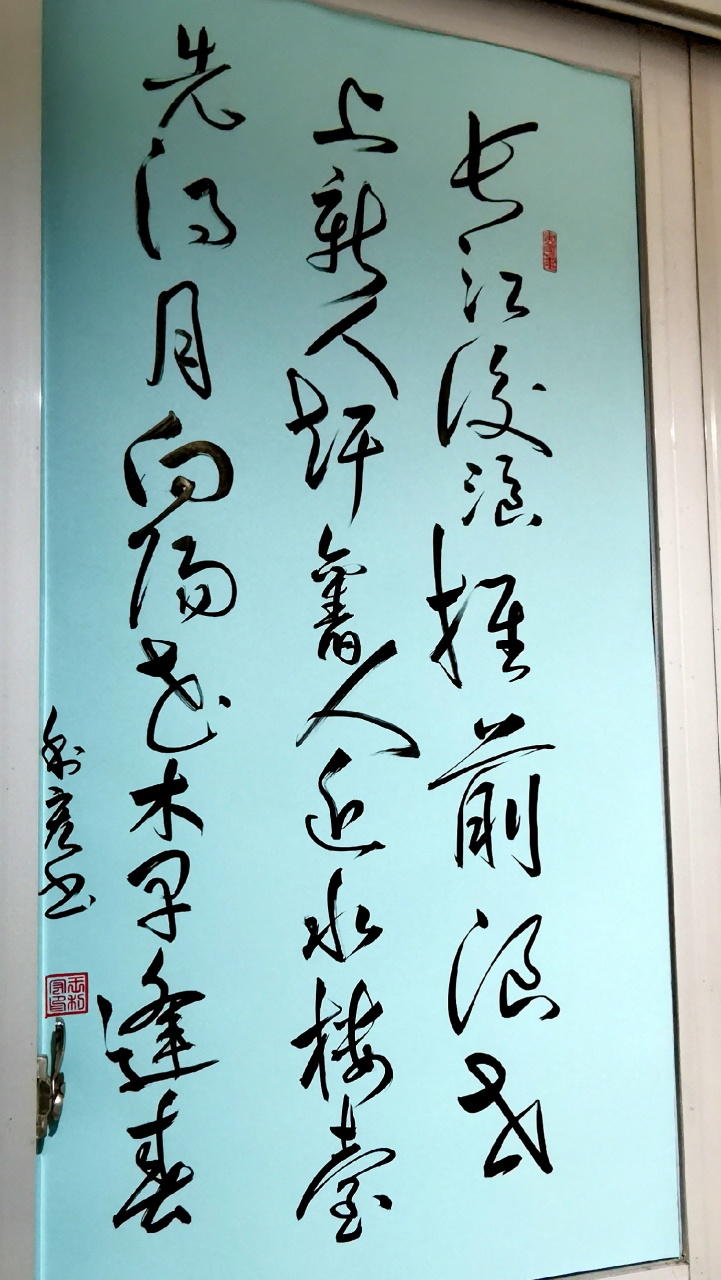 长江後浪推前浪世
上新人赶舊人近水楼臺
先得月向陽花木早逢春
利彦书